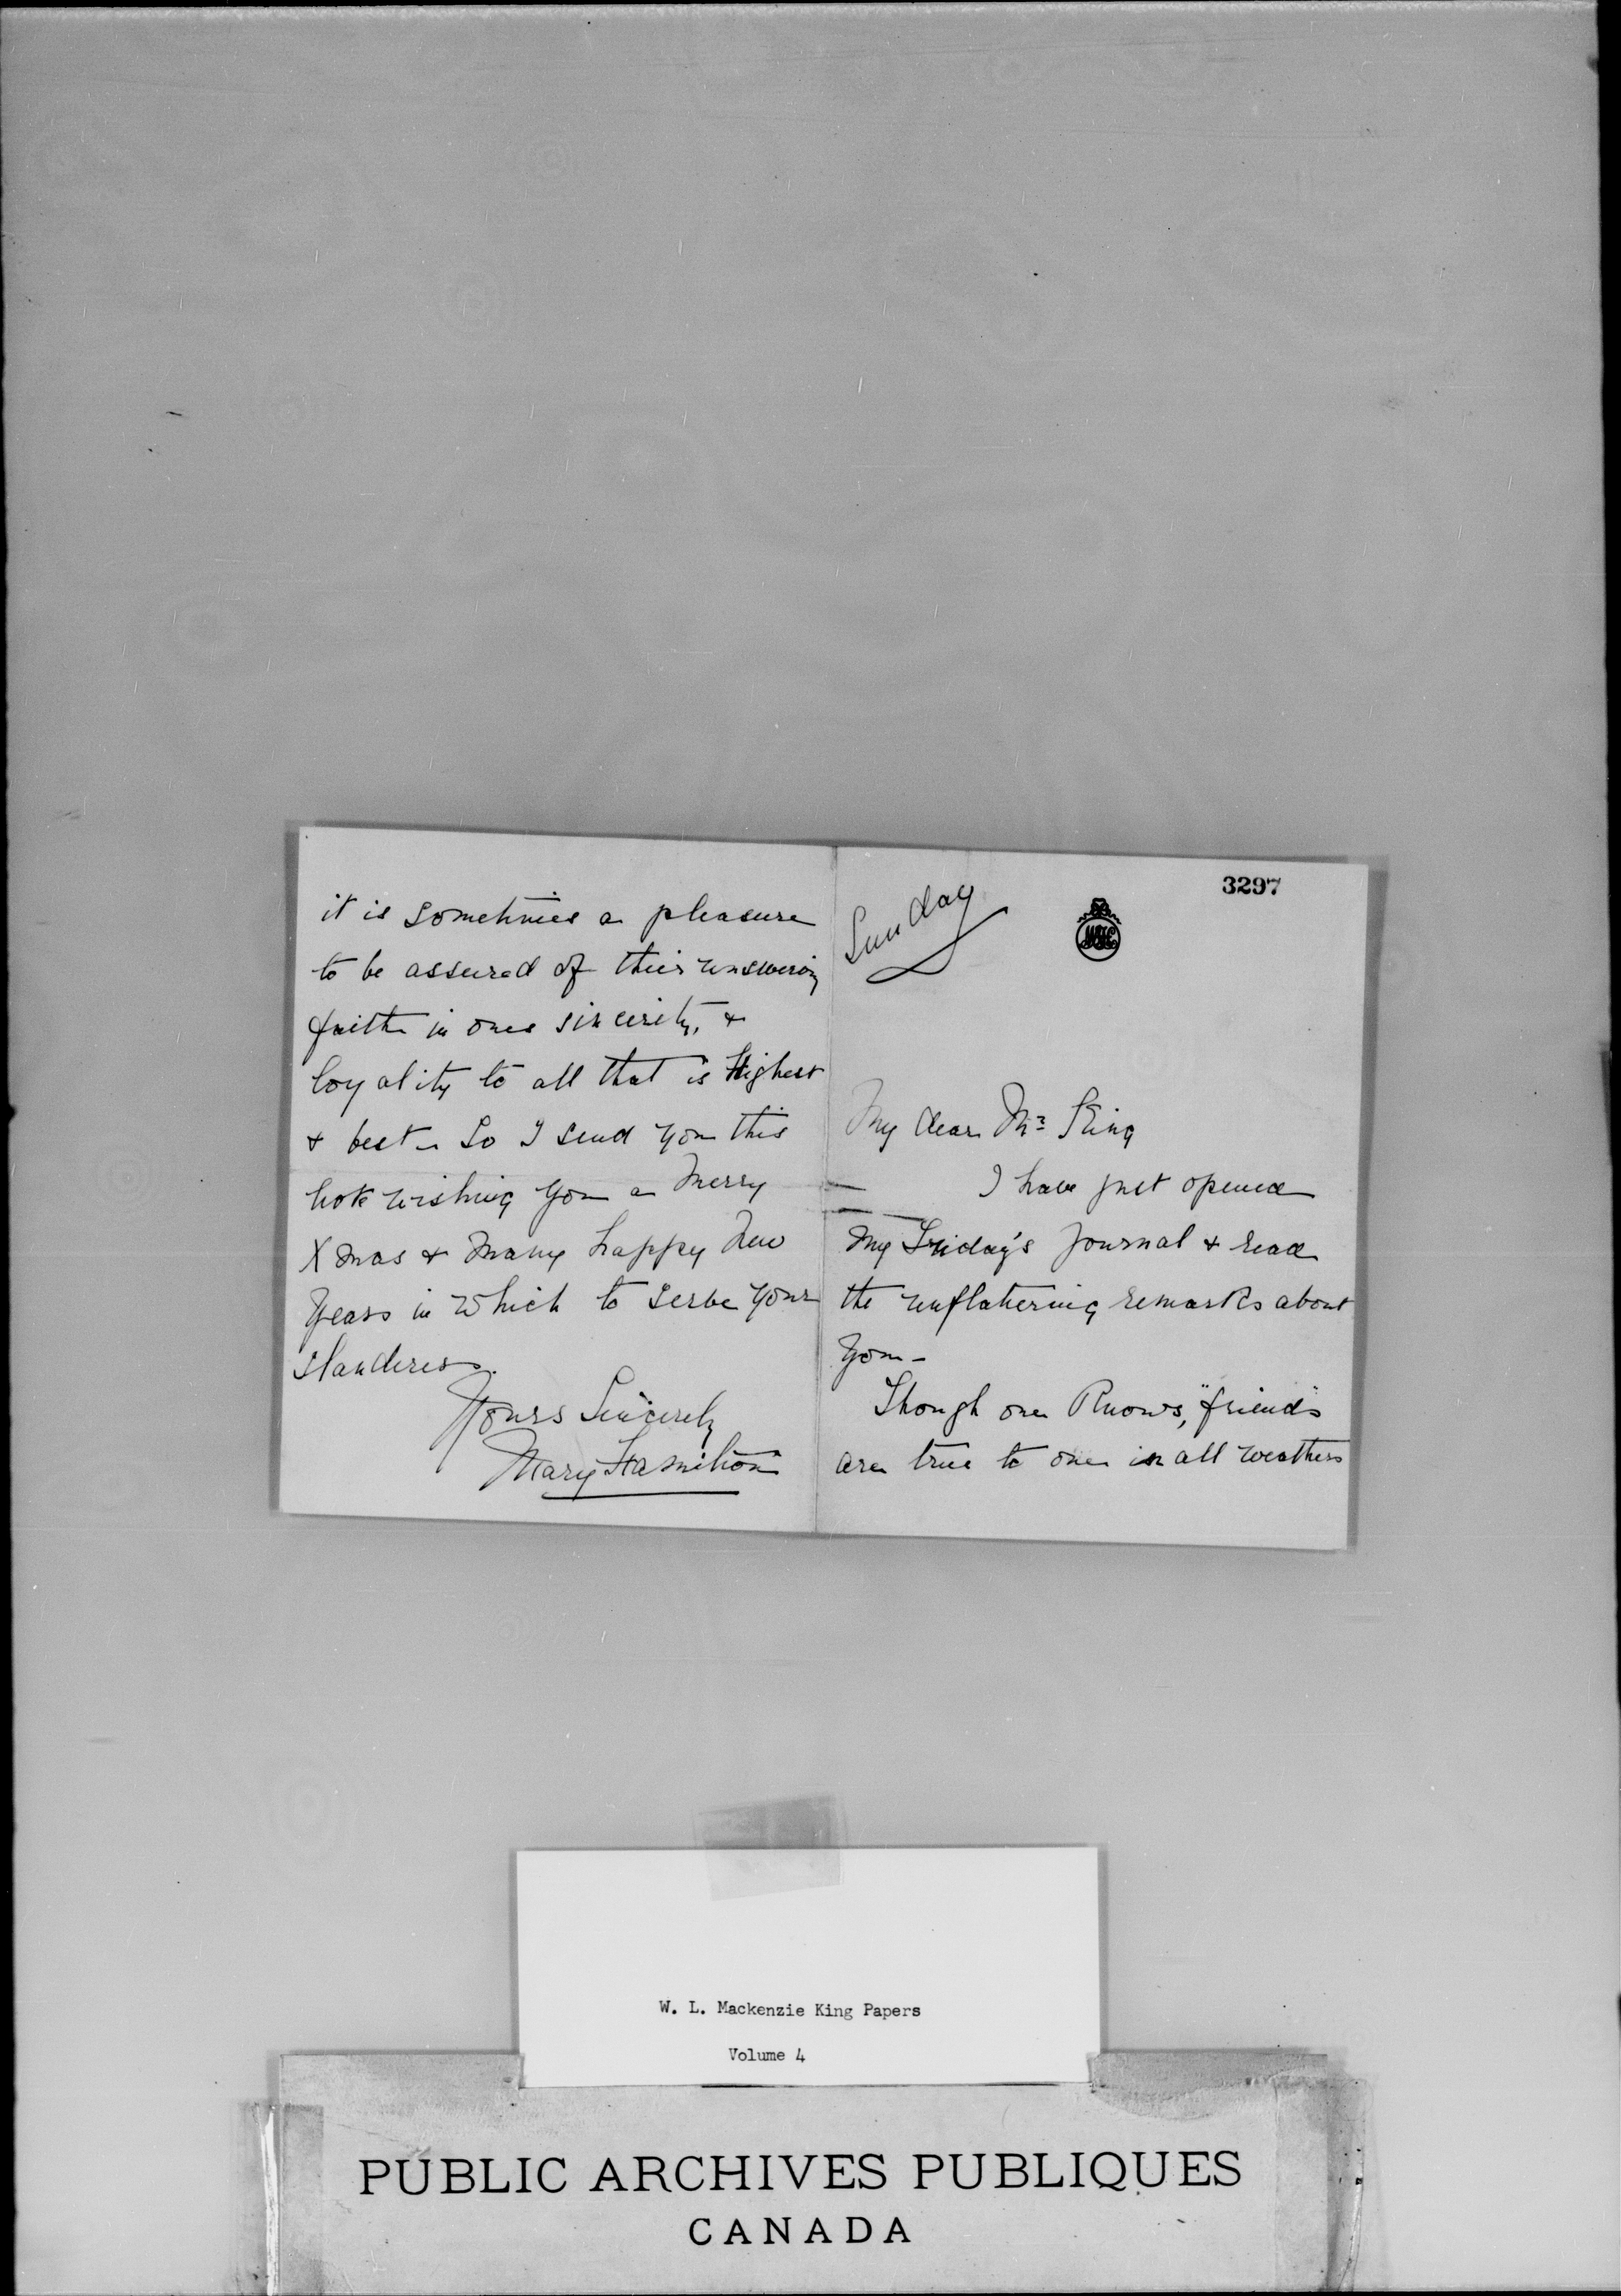 3297
Sunday
My dear Mr King
I have just opened
my Friday's Journal & read
the unflatiering remarks about
you -
Though one knows, "friends"
are true to one in all weathers
it is sometimes a pleasure
to be assured of their unswerving
faith in ones sincerity, &
loyality to all that is Highest
& best - So I send you this
note wishing you a Merry
Xmas & Many happy New
Years in which to serve your
slanderers.
Yours Sincerely
Mary Hamilton
W. L. Mackenzie King Papers
Volume 4
PUBLIC ARCHIVES PUBLIQUES
CANADA